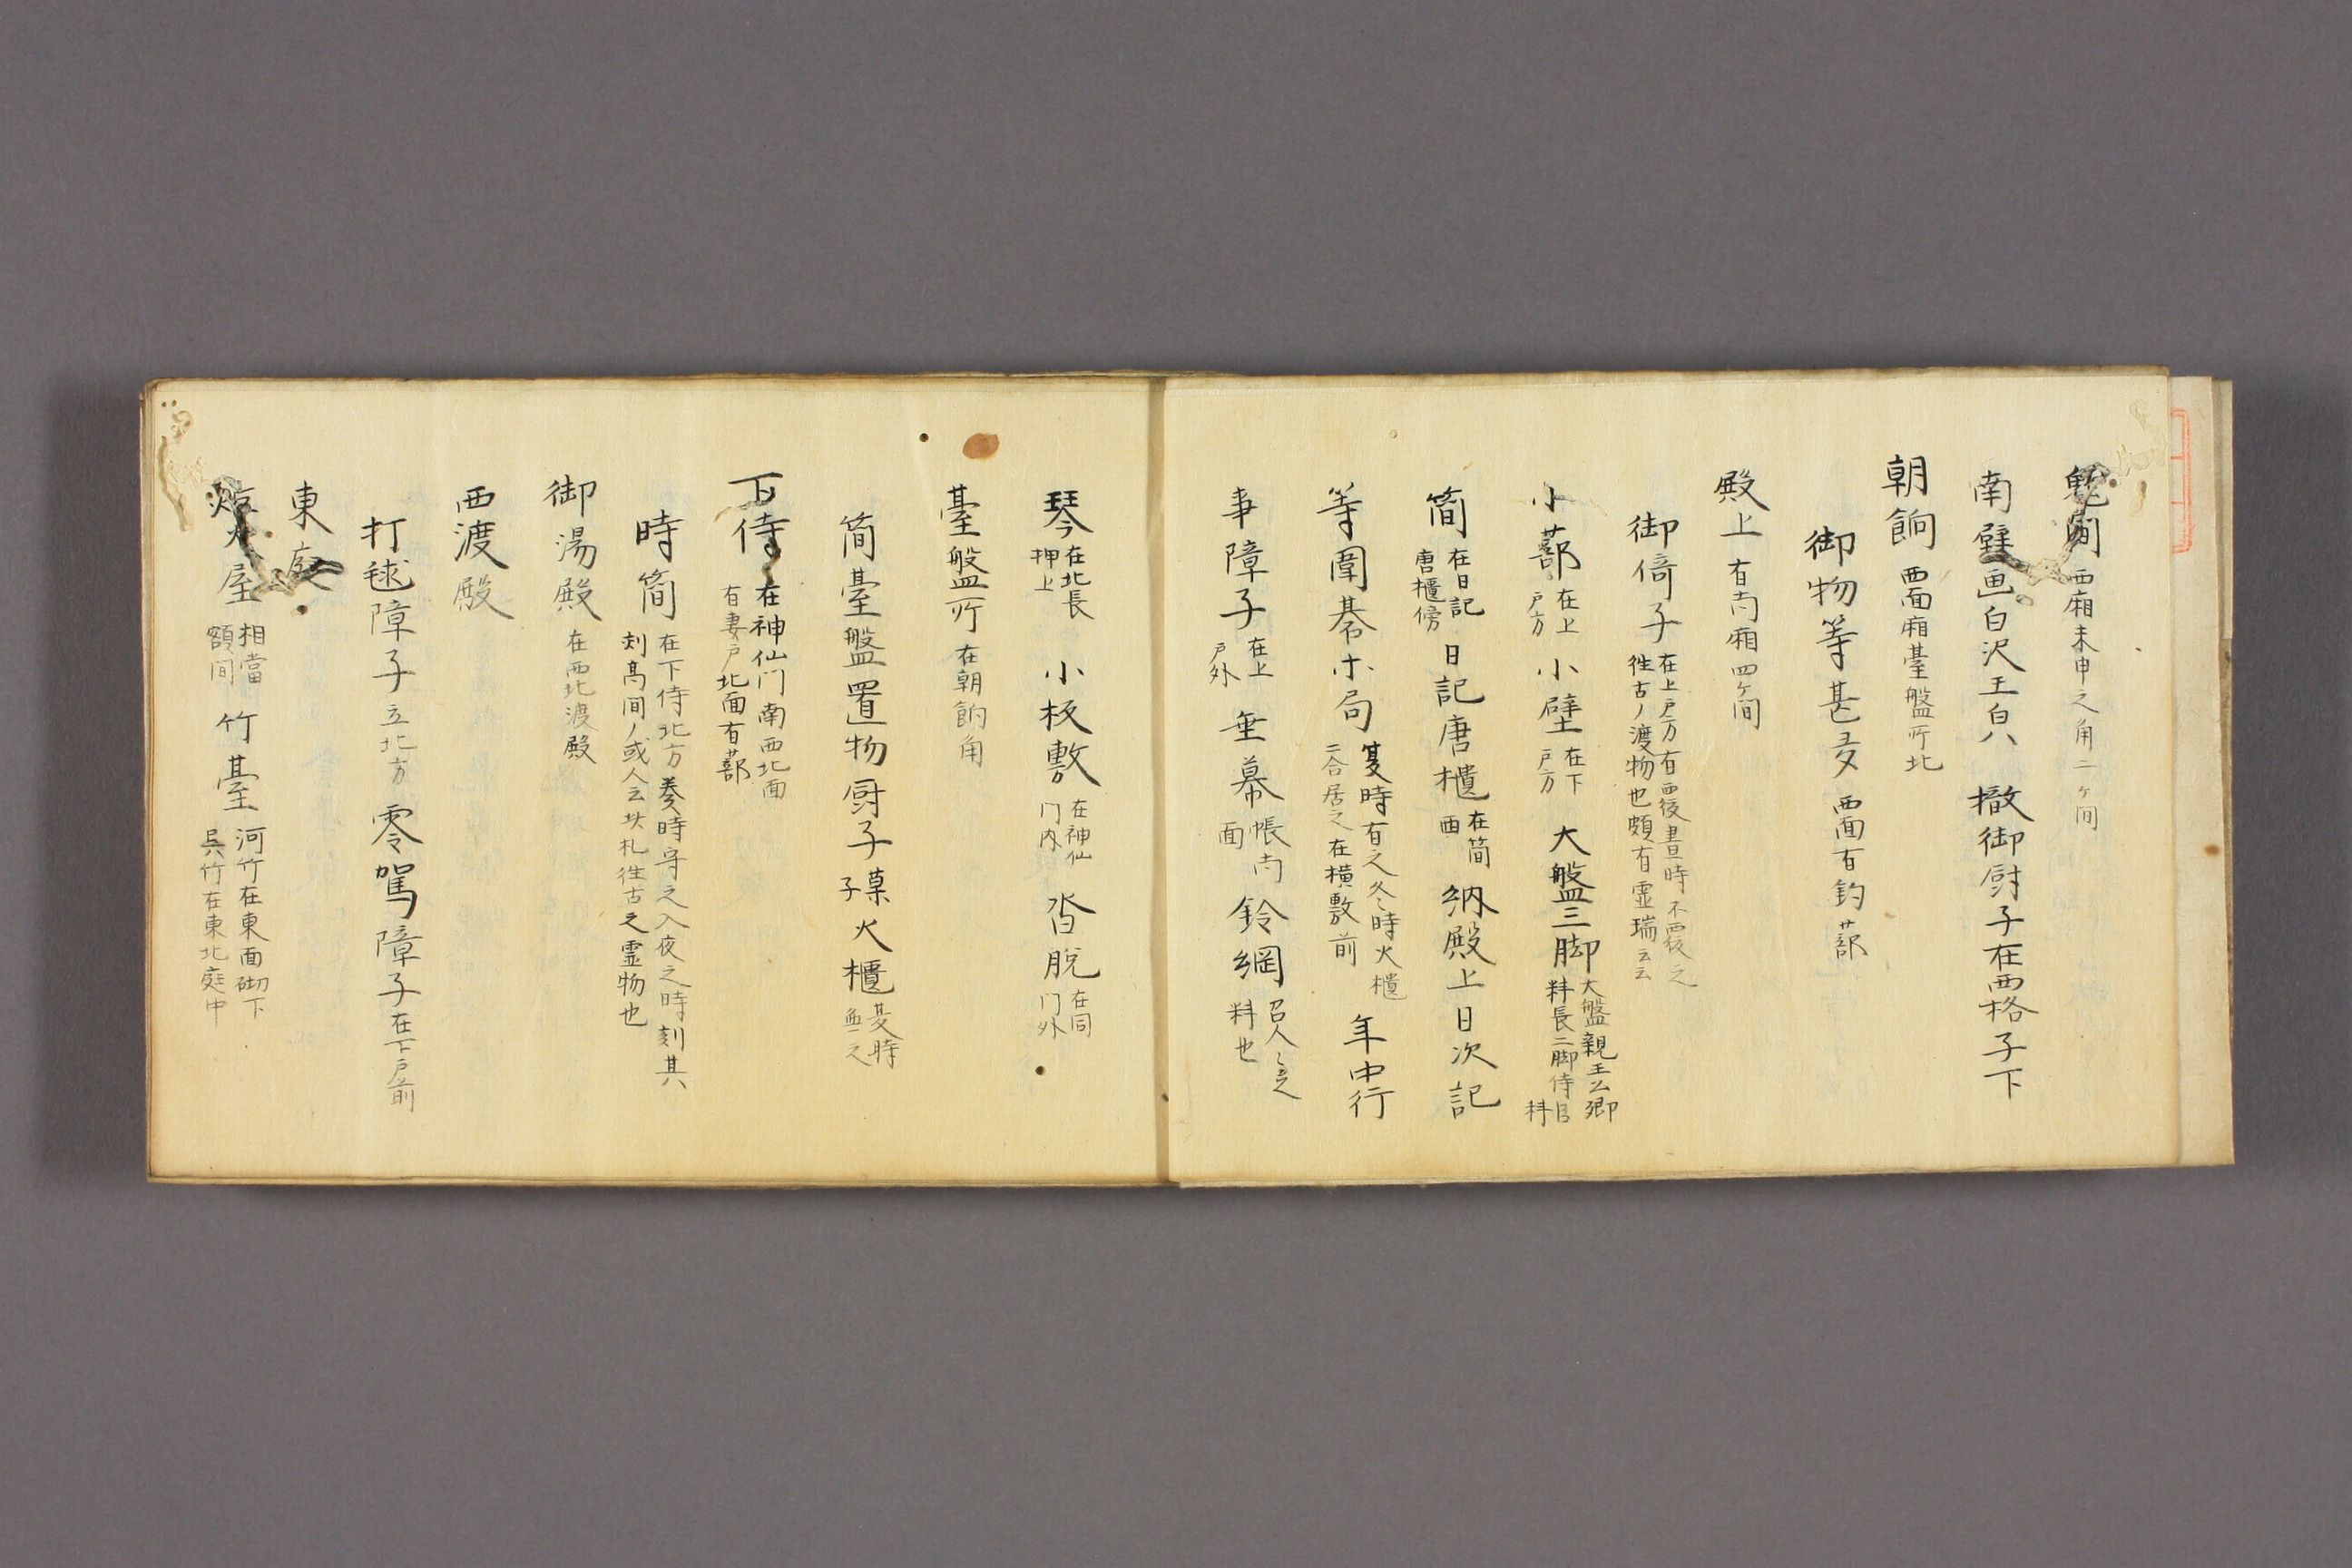 鬼間 西廂未申之角二ヶ間
南壁画白沢王白八 撤御厨子在西格子下
朝餉 西面廂臺盤所北
御物等甚多 西面有釣蔀
殿上 有南廂四ヶ間
御倚子 在上戸方有西後晝時不西後之
往古ノ渡物也頗有霊瑞云云
小蔀 在上戸方 小壁 在下戸方 大盤三脚 大盤親王公卿
料長二脚侍臣料
簡 在日記唐櫃傍 日記唐櫃 在簡西 納殿上日次記
等圍碁 局 夏時有之冬時火櫃
二合居之在横敷前 年中行
事障子 在上戸外 垂幕 帳南面 鈴綱 召人之
料也
琴 在北長押上 小板敷 在神仙门内 沓脱 在同门外
臺盤所 在朝餉角
簡臺盤置物厨子菓子 火櫃 夏時無之
下侍 在神仙门南西北面
有妻戸北面有蔀
時簡 在下侍北方奏時守之入夜之時刻其
刻高間ノ或人云此札往古之霊物也
御湯殿 在西北渡殿
西渡殿
打毬障子 立北方 零駕障子 在下戸前
東庭
炬火屋 相當額間 竹臺 河竹在東面砌下
呉竹在東北庭中